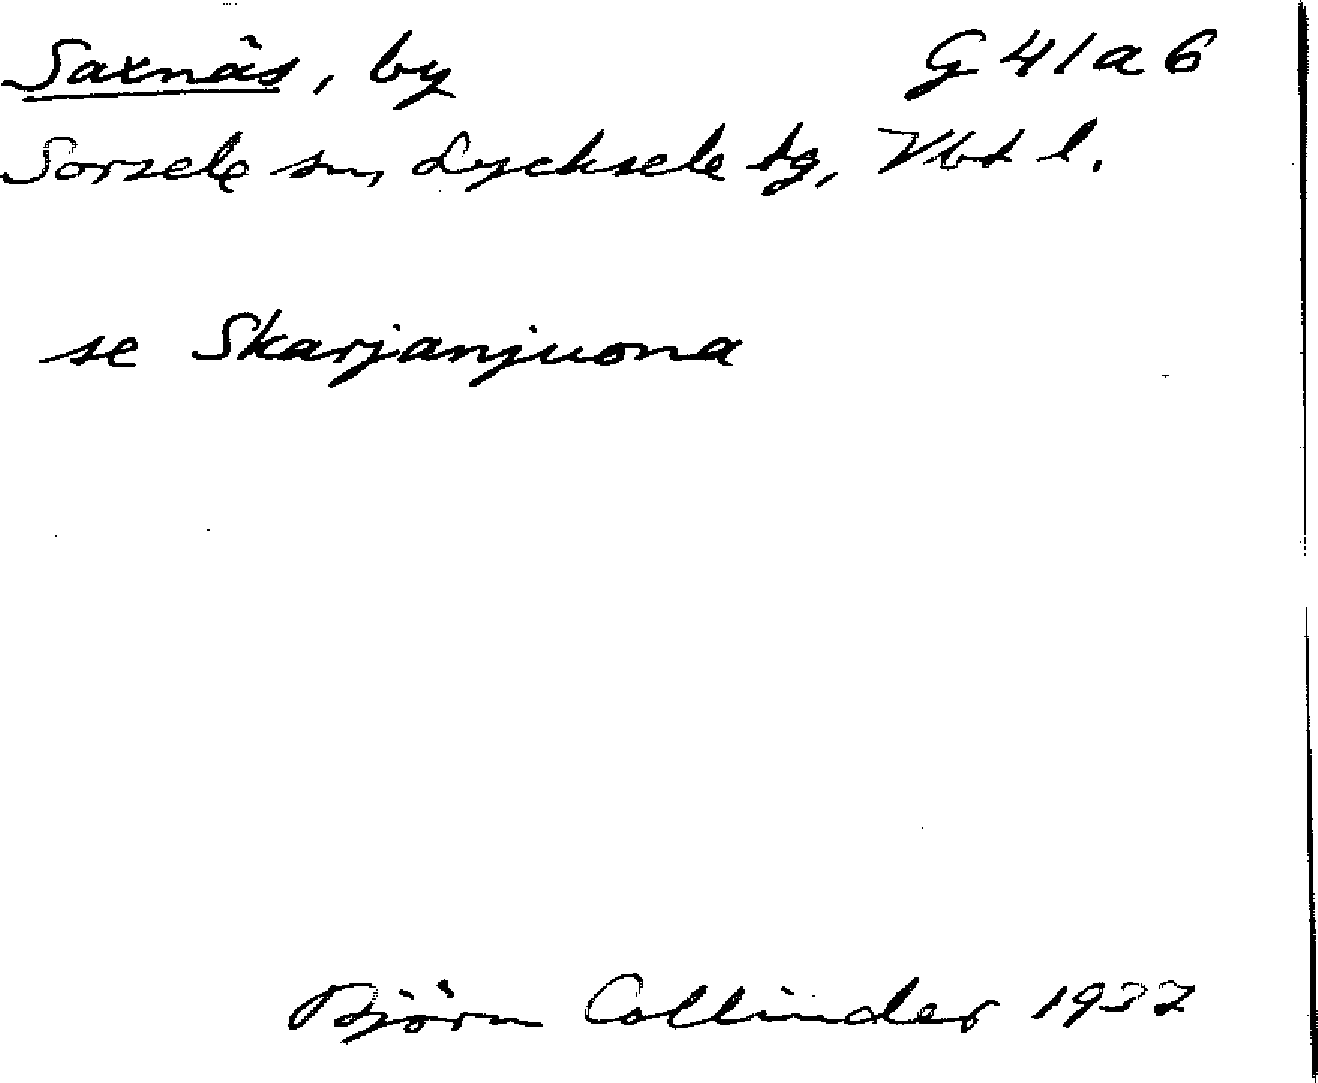 Saxnäs, by G 41 a 6
Sorsele sn, Lycksele tg, Vbt l.
se Skarjanjuona
Björn Collinder 1937